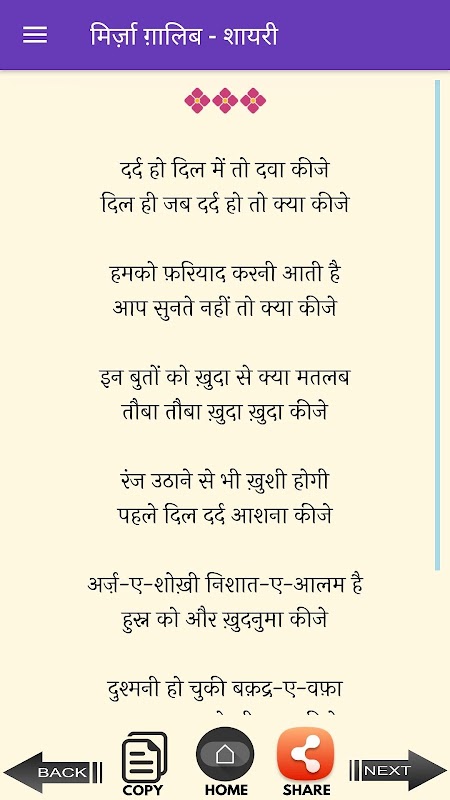 मिर्ज़ा ग़ालिब - शायरी
दर्द हो दिल में तो दवा कीजे
दिल ही जब दर्द हो तो क्या कीजे
हमको फ़रियाद करनी आती है
आप सुनते नहीं तो क्या कीजे
इन बुतों को ख़ुदा से क्या मतलब
तौबा तौबा ख़ुदा ख़ुदा कीजे
रंज उठाने से भी ख़ुशी होगी
पहले दिल दर्द आशना कीजे
अर्ज़-ए-शोख़ी निशात-ए-आलम है
हुस्न को और ख़ुदनुमा कीजे
दुश्मनी हो चुकी बक़द्र-ए-वफ़ा
BACK COPY HOME SHARE NEXT